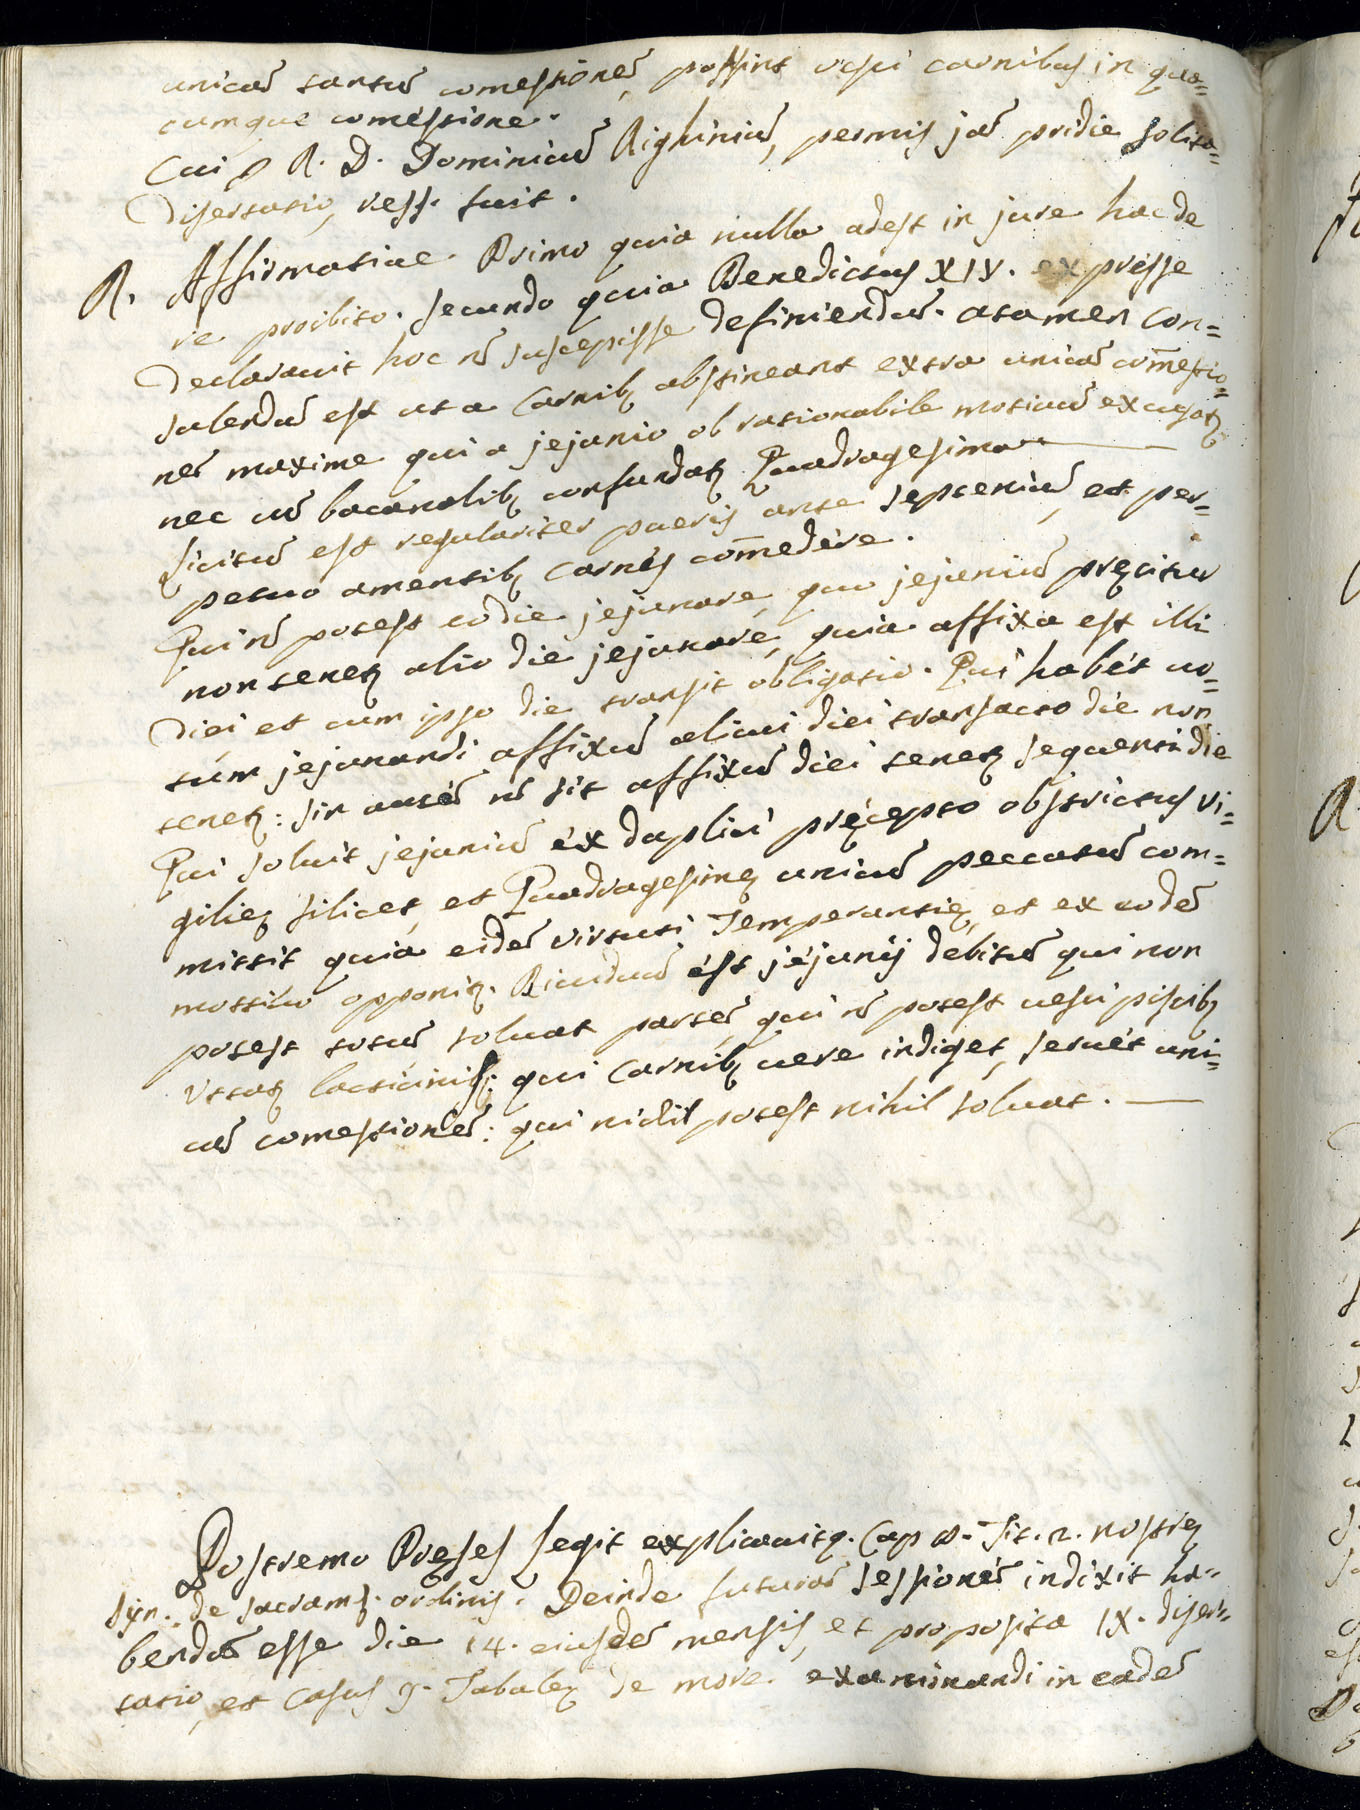 unicã tantũ comestionẽ, possint vesci carnibus in qua=
cumque comestione.
Cui p R. D. Dominicũ Righinium, permis jã pridie solita=
disertatio, ress. fuit.
R. Affirmative. Primo quia nulla adest in jure hac de
re proibitio. secundo quia Benedictus XIV. expresse
declaravit hoc nõ suscepisse definiendum. atamen con=
sulendũ est ut a Carnibq abstineant extra unicã com̃estio=
nẽ maxime qui a jejunio ob rationabile motivũ excusatq
nec cũ bacanalibq confundatq Quadragesima
Licitũ est regulariter pueris ante septenium, et per=
petuo amentibq Carnes com̃edere.
Qui nõ potest eo die jejunare, quo jejuniũ pręcitur
non tenetq alio die jejunare, quia affixa est illi
diei et cum ipso die transit obligatio. Qui habet uo=
tum jejunandi affixũ alicui diei transacto die non
tenetq: sin autẽ nõ sit affixũ diei tenetq sequenti die
Qui soluit jejuniũ ex duplici pręcepto obstrictus vi=
gilię silicet, et Quadragesimę unicũ peccatũ com=
mittit quia eidẽ virtuti Temperantię, et ex eodẽ
mottiuo opponitq. Diuiduũ est jejunij debitũ qui non
potest totũ soluat partẽ, qui nõ potest uesci piscibq
uttatq lacticinijs: qui Carnibq uere indiget, seruet uni=
cã comestionẽ: qui nichil potest nihil soluat.
Postremo Pręses legit explicauitq. Cap 8. Tit. 2. nostrę
syn. de sacramtj. ordinis. Deinde futurã sessionẽ indixit ha=
bendã esse die 14. eiusdẽ mensis, et proposita IX. diser=
tatio, et Casus 9. Tabalę de more. examinandi in eadẽ